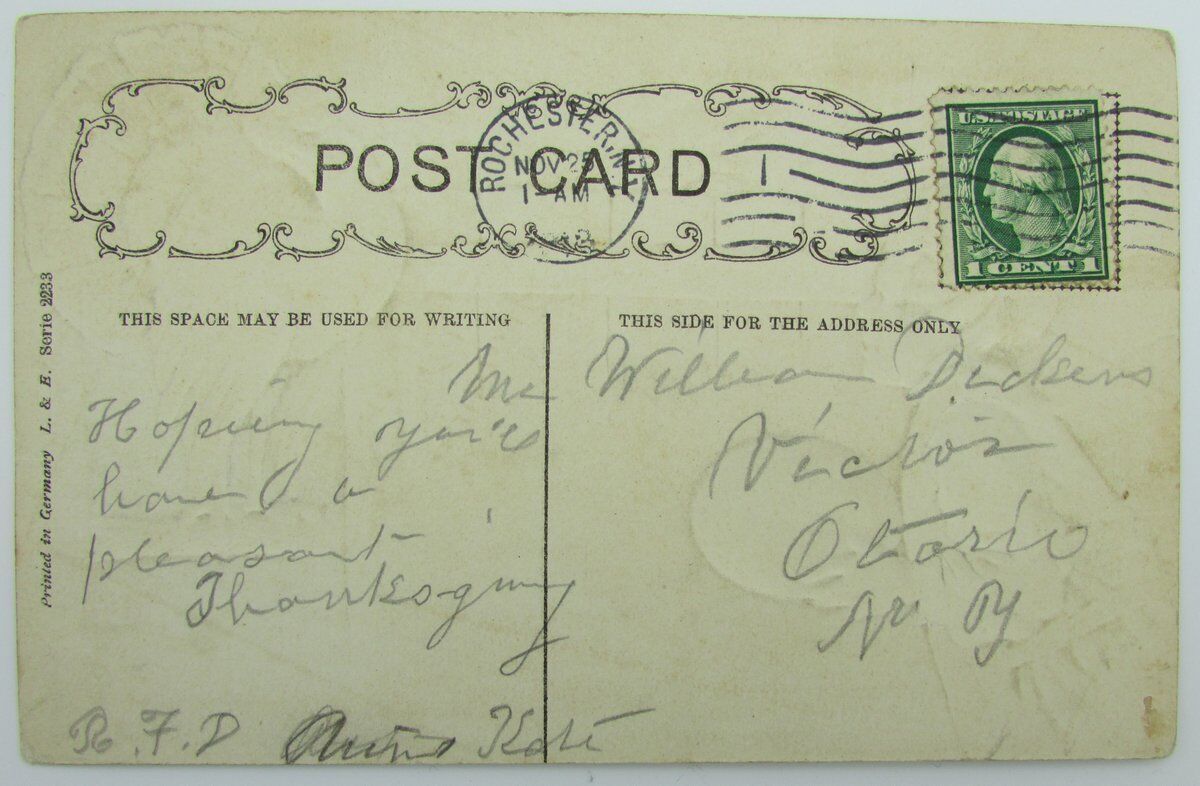 POST CARD
ROCHESTER, N.Y.
NOV 25
1 AM
1
U.S. POSTAGE
1 CENT 1
Printed in Germany L. & E. Serie 2233
THIS SPACE MAY BE USED FOR WRITING
THIS SIDE FOR THE ADDRESS ONLY
Mr William Dickens
Victor
Otario
N. Y.
Hopeing you'll
have a
pleasant
Thanksgiving
R.F.D Kate